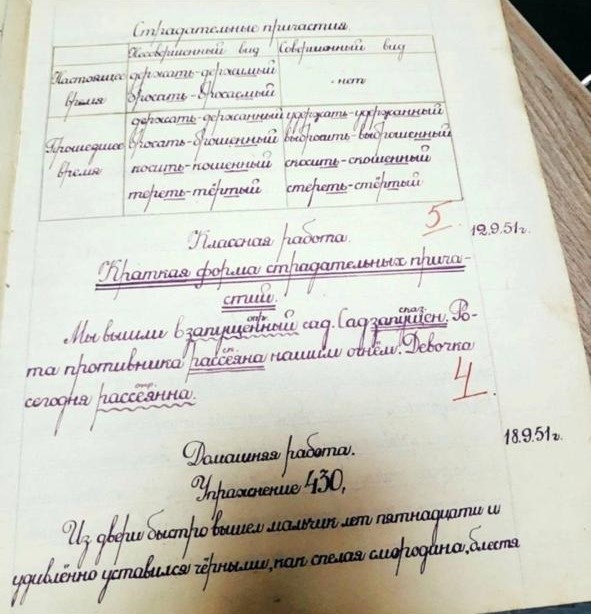 Страдательные причастия.
Несовершенный вид Совершенный вид
Настоящее время держать-держимый бросать-бросаемый нет
Прошедшее время держать-держанный удержать-удержанный
бросать-брошенный выбросить-выброшенный
косить-кошенный скосить-скошенный
тереть-тёртый стереть-стёртый
5
Классная работа. 12.9.51г.
Краткая форма страдательных прича-
стий.
опр. сказ.
Мы вышли в запущенный сад. Сад запущен. Ро-
ск.
та противника рассеяна нашим огнём. Девочка
опр.
сегодня рассеянна.
4
Домашняя работа. 18.9.51г.
Упражнение 430,
Из двери быстро вышел мальчик лет пятнадцати и
удивлённо уставился чёрными, как спелая смородина, блестя